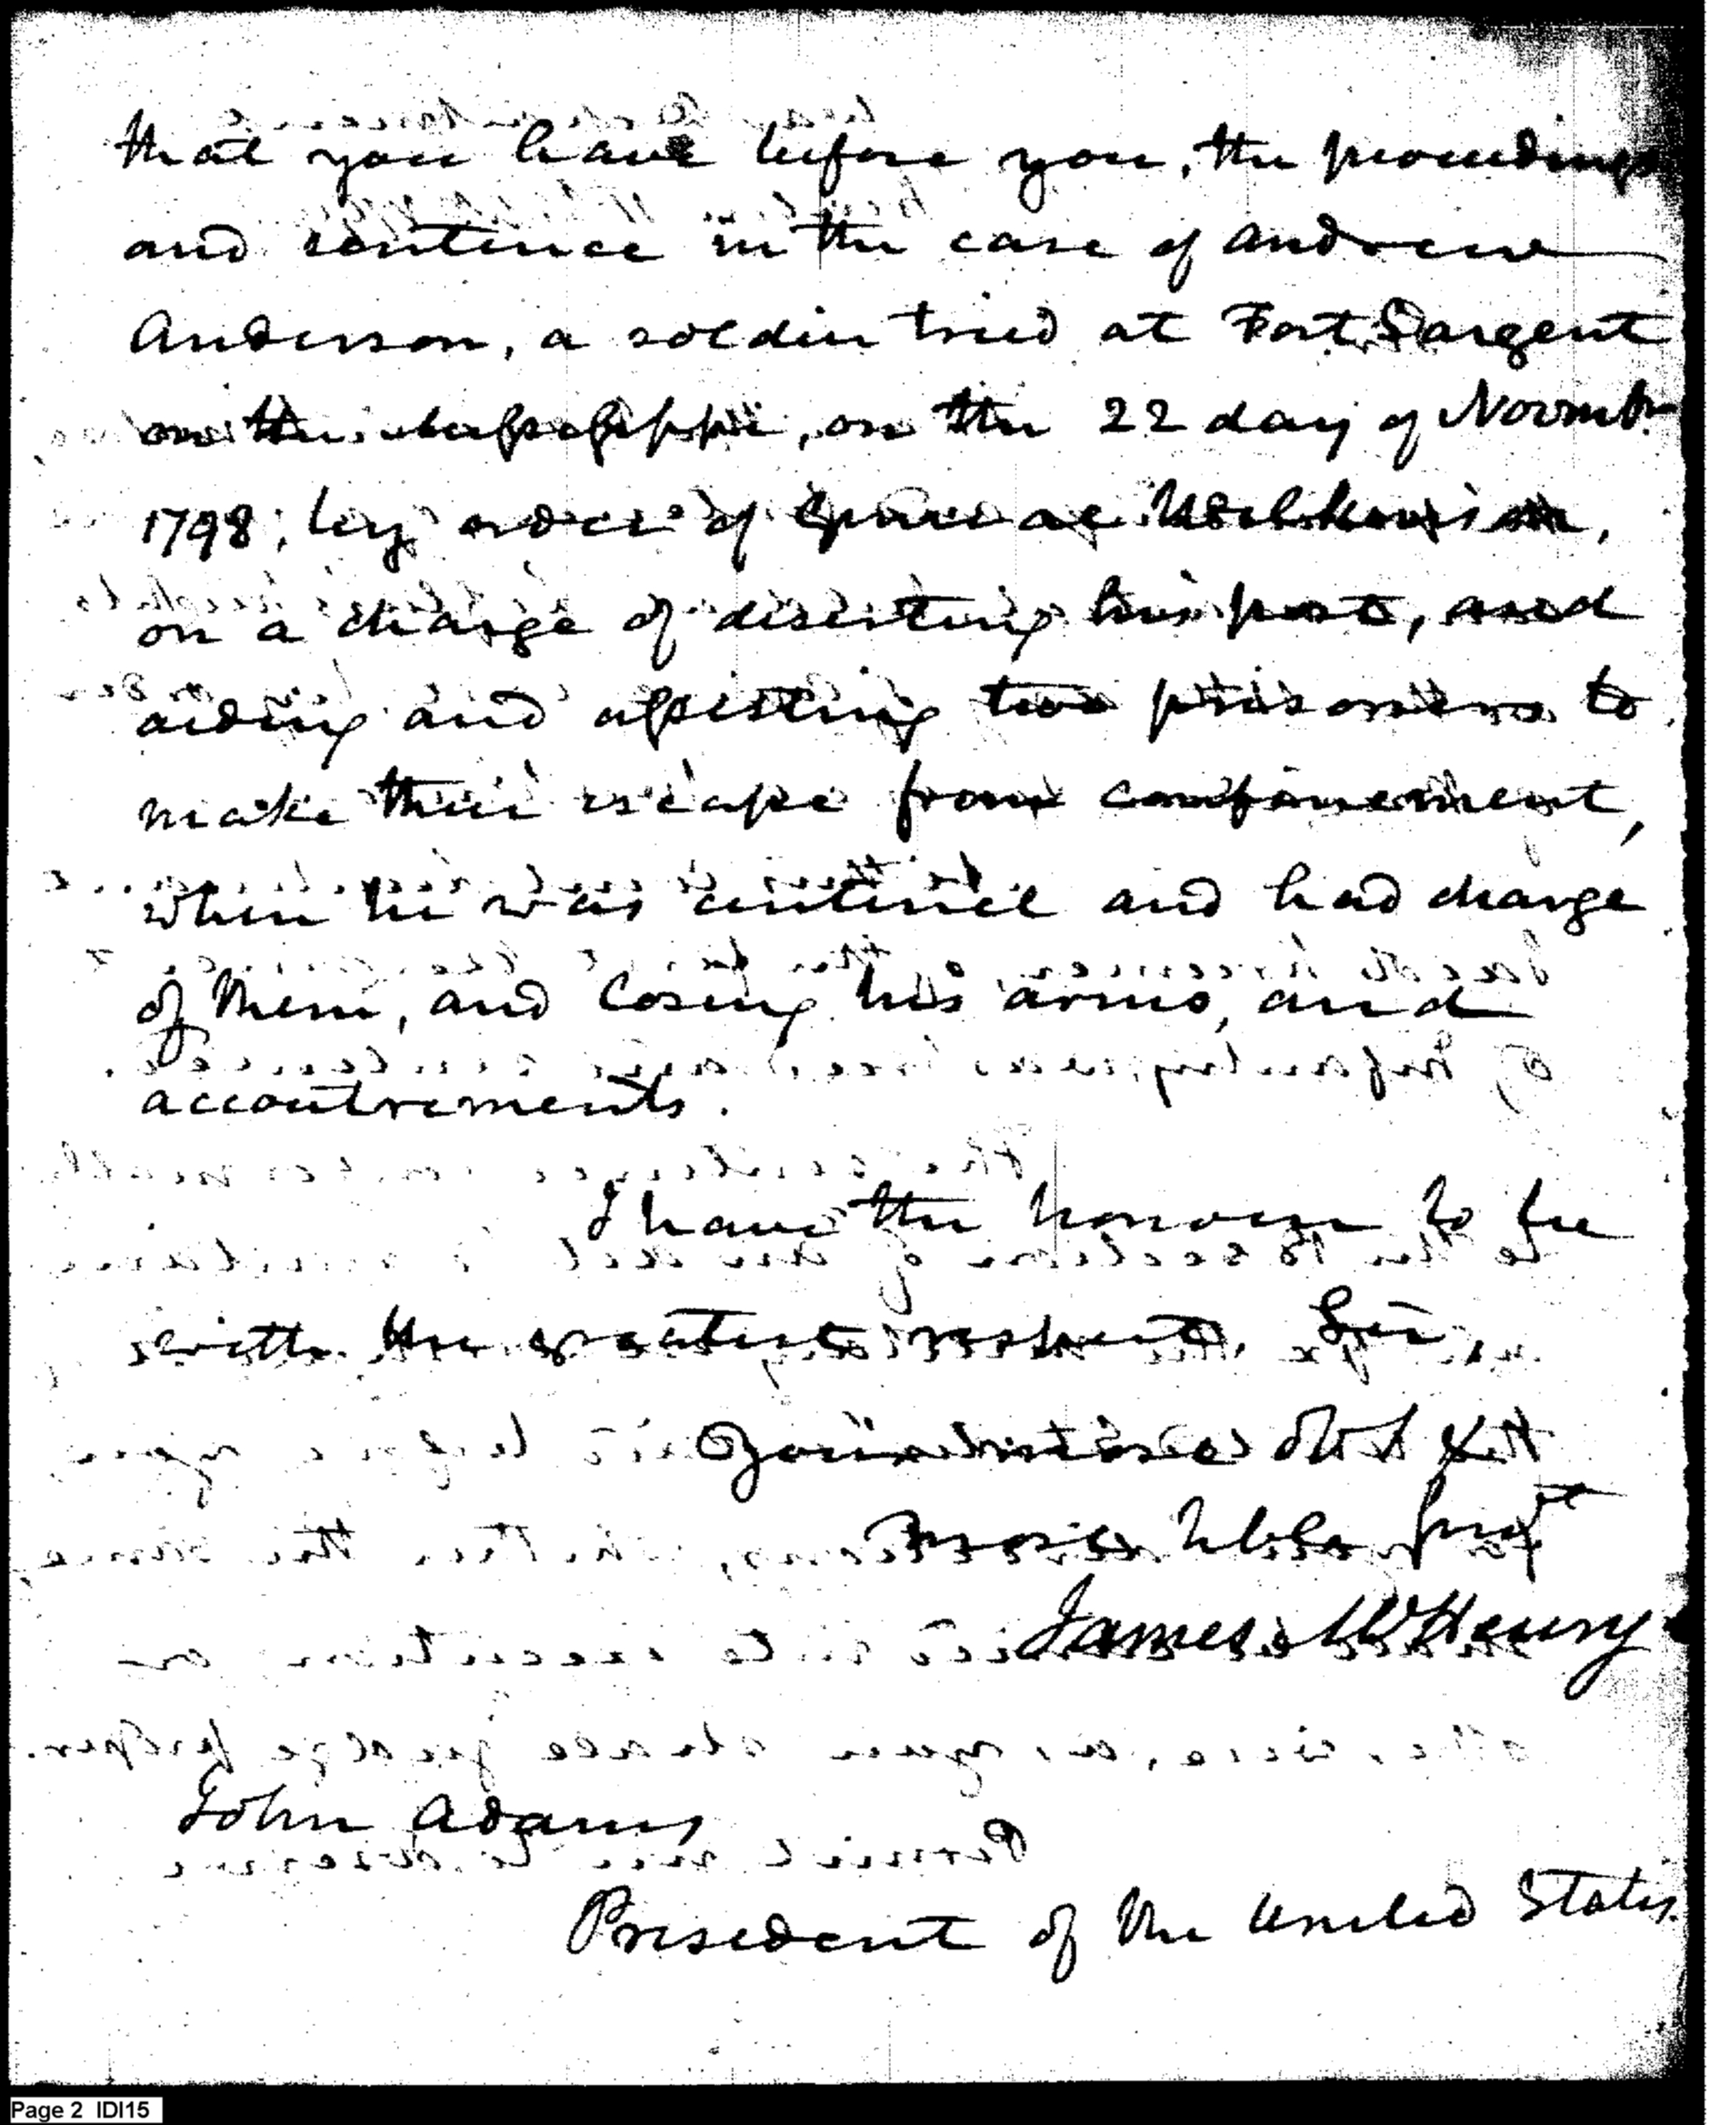 that you have before you, the proceedings
and sentence in the case of Andrew
Anderson, a soldier tried at Fort Sargent
on the Mississippi, on the 22 day of Novembr
1798, by order of General Wilkinson,
on a charge of deserting his post, and
aiding and assisting two prisoners to
make their escape from confinement,
when he was centinel and had charge
of them, and losing his arms, and
accoutrements.
I have the honour to be
with the greatest respect, Sir,
Your most Obt &
most hble Sert
James McHenry
John Adams
President of the United States.
Page 2 IDI15